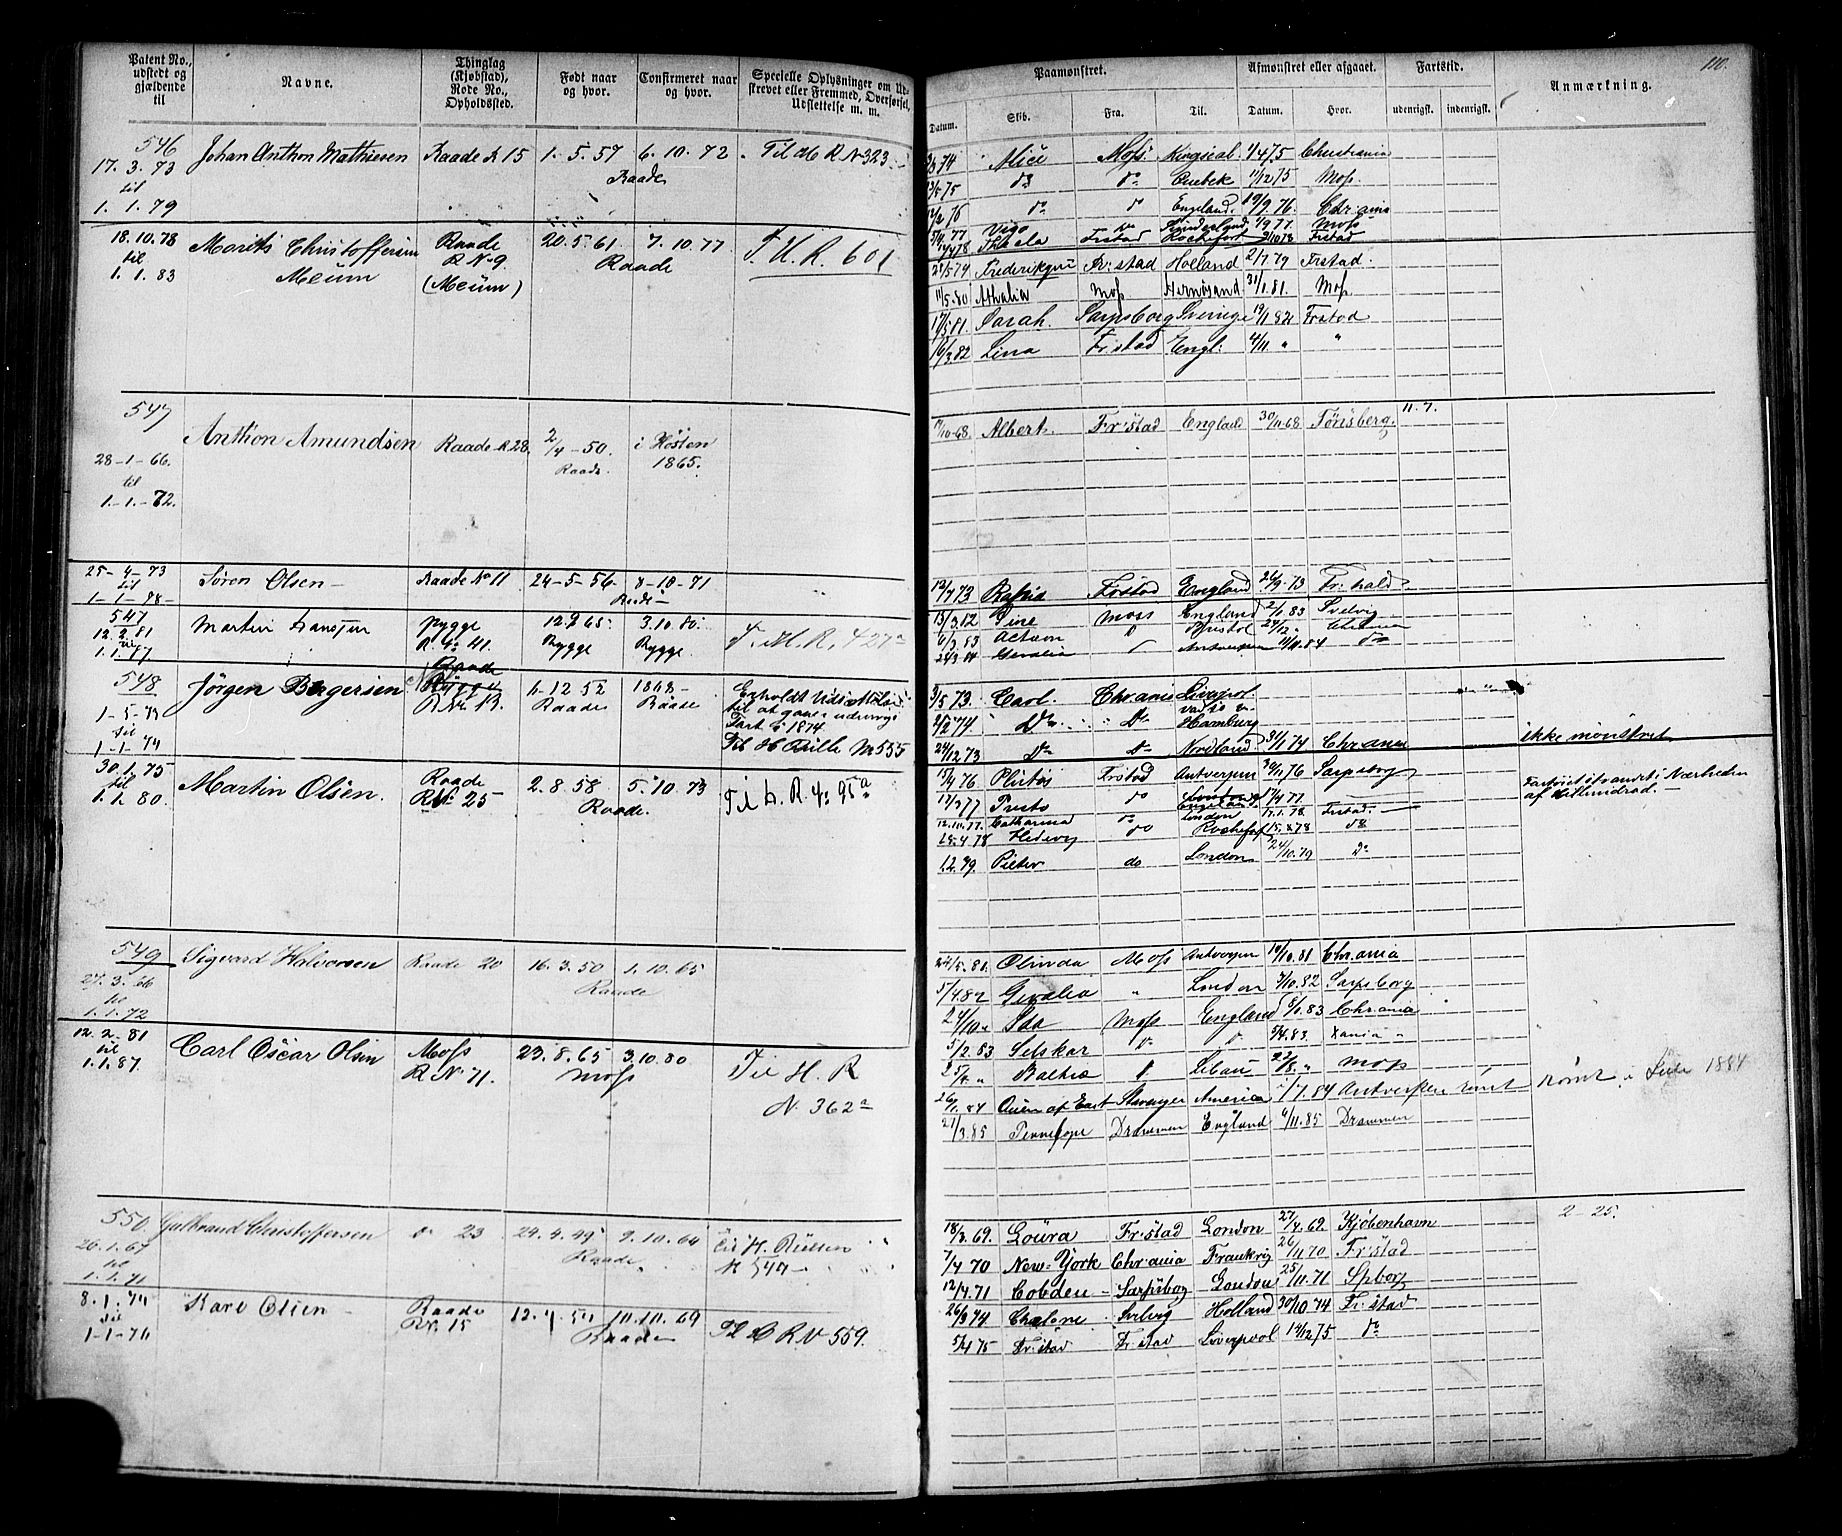 Patent No., udstedt og gjældende til
Navne.
Thinglag (Kjøbstad), Rode No., Opholdssted.
Født naar og hvor.
Confirmeret naar og hvor.
Specielle Oplysninger om Udstrevet eller Fremmed, Overførsel, Udslettelse m. m.
Paamønstret.
Afmønstret eller afgaaet.
Fartstid.
Anmærkning.
110.
Datum.
Skib.
Fra.
Til.
Datum.
Hvor.
udenrigsk.
indenrigsk.
546
17. 3. 73 til 1. 1. 79
Johan Anthon Mathiesen
Raade R 15
1. 5. 57
6. 10. 72
Raade
Til H R N 323
74 Alice Moss 1/4 75 Christiania
75 do do Quebek 11/12 75 Moss.
76 do do England. 19/9 76. Chr:ania
77 Vigo do Sunderland 77 Moss
18. 10. 78 til 1. 1. 83
Morits Christoffersen Meüm
Raade R No 9. (Meüm)
20. 5. 61.
7. 10. 77
Raade
T. H. R. 601
78 Thela Frstad Rochefort 78 Frstad
79 Fr:stad Holland 2/7 79 Frstad.
11/5. 80 Athalia Moss Hernøsand 31/1. 81. Moss
17/5 81. Sarah. Sarpsborg Sverige 19/1 82 Frstad
16/3 82 Lina Fr:stad Engl: 4/11. " "
547
28-1-66. til 1.-1.-72.
Anthon Amundsen
Raade R 28.
2/4-50.
Raade.
i Høsten 1865.
/10-68. Albert. Fr:stad England 30/11-68. Tønsberg. 11. 7.
25-4-73 til 1-1-98-
Søren Olsen-
Raade No 11
24-5-56.
8-10-71
Raade-
13/7 73 Frstad England 26/9. 73 Fr:hald
547
12. 2. 81 til 1. 1. 77
Martin Hansen
Rygge R. No 41.
12. 9 65. Rygge
3. 10. 80. Rygge.
T. H. R. 427a
13/3. 82 Line Moss England 2/1. 83 Svelvig
6/3. 83 Actæon Bristol
24/3. 84 Geralia Antwerpen 11/11. 84 do
548
1-5-73 til 1-1-74
Jørgen Børgersen
Raade R No 13.
4-12 52 Raade
1868- Raade
Erholdt til at gaae i udenrigs Fart i 1874.
Til H Rulle No 555
3/5 73. Carl. Chrania Liverpol
2/2 74. Do. Do Hamburg
24/12. 73 Do Do Nordland. 31/1 74 Chrania
ikke mønstret
30. 1. 75 til 1. 1. 80.
Martin Olsen.
Raade R No 25-
2. 8. 58
5. 10. 73
Raade.
Til H. R. No 95a
15/4 76 Frstad Antverpen 76 Sarpsborg
77 Presto do England 77.
12. 10. 77. Catharina do London 17. 1. 78. Frstad.
28. 4 78 Hedevig do Rochefort 15. 78 do
1.2. 79. Pieter do London 24/10. 79 Do
af
549
27. 3. 66 til 1. 1. 72
Sigvard Halvorsen
Raade 20
16. 3. 50
1. 10. 65
Raade
81. Olinda Moss Antverpen 19/10. 81 Chrania
5/4. 82 Geralia " London 7/10. 82 Sarpsborg
24/10. " Ida Moss England 6/1. 83 Chrania
12. 2. 81 til 1. 1. 87.
Carl Oscar Olsen
Moss R No 71.
23. 8. 65
3. 10. 80
Moss
Til H. R No 362a
5/2. 83 Selskar Do D 5/4. 83. Xania "
25/4. " Baltic D Libau 22/8. " Moss
26/1. 84 Quen af East Stavanger America 1/7. 84 Antverpen rømt
rømt i 1884
21/3. 85 Pennelope Drammen England 6/11. 85 Drammen
550.
26. 1. 67 til 1. 1. 71
Gulbrand Christoffersen
do 23
24. 4. 49
9. 10. 64
Raade
til H. Rullen N 547
18/3. 69. Loüra Fr:stad London 27/4. 69. Kjøbenhavn 2-25.
7/4 70 New-York Chrania Frankrig 26/11 70 Fr:stad
12/4. 71 Cobden- Sarpsborg London 25/11. 71 Spborg
8. 1. 74 til 1-1-79
Karl Olsen
Raade R No 15
12. 4. 54
10. 10. 69
Raade
Til H R. N 559.
26/3 74 Svelvig Holland 30/10 74 Fr:stad
5/4 75 Fr:stad Fr:stad Liverpool 14/12. 75 do